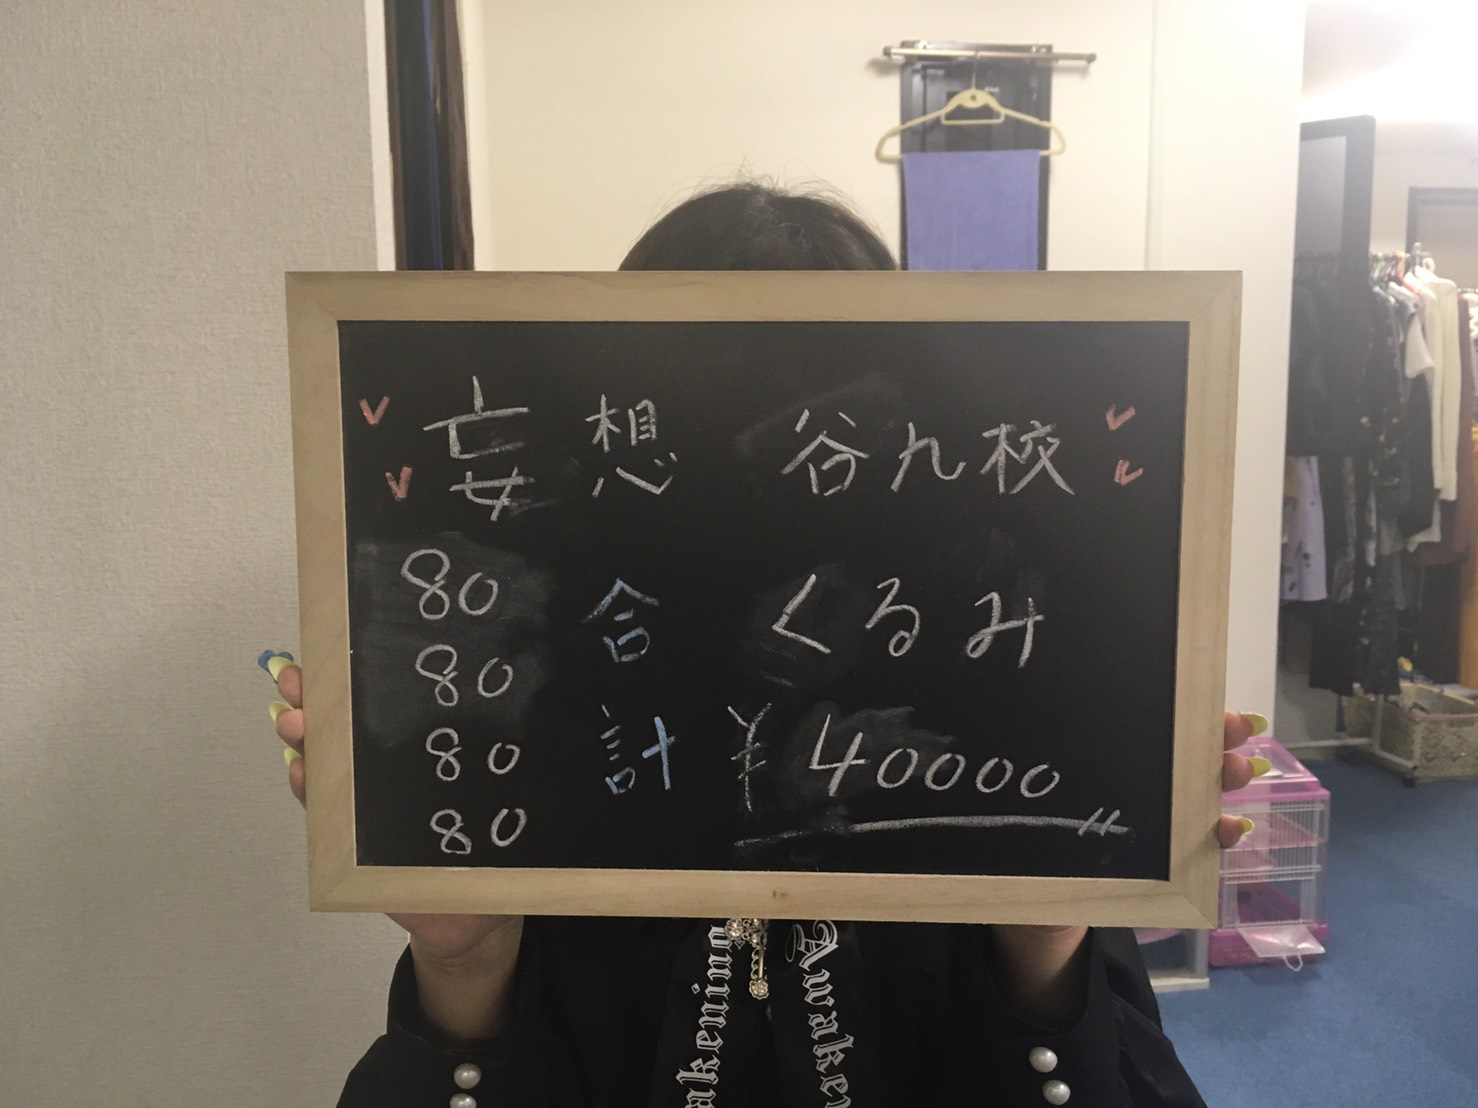 妄想 谷九校
80 合 くるみ
80
80 計 ¥40000
80
akening
Awaken